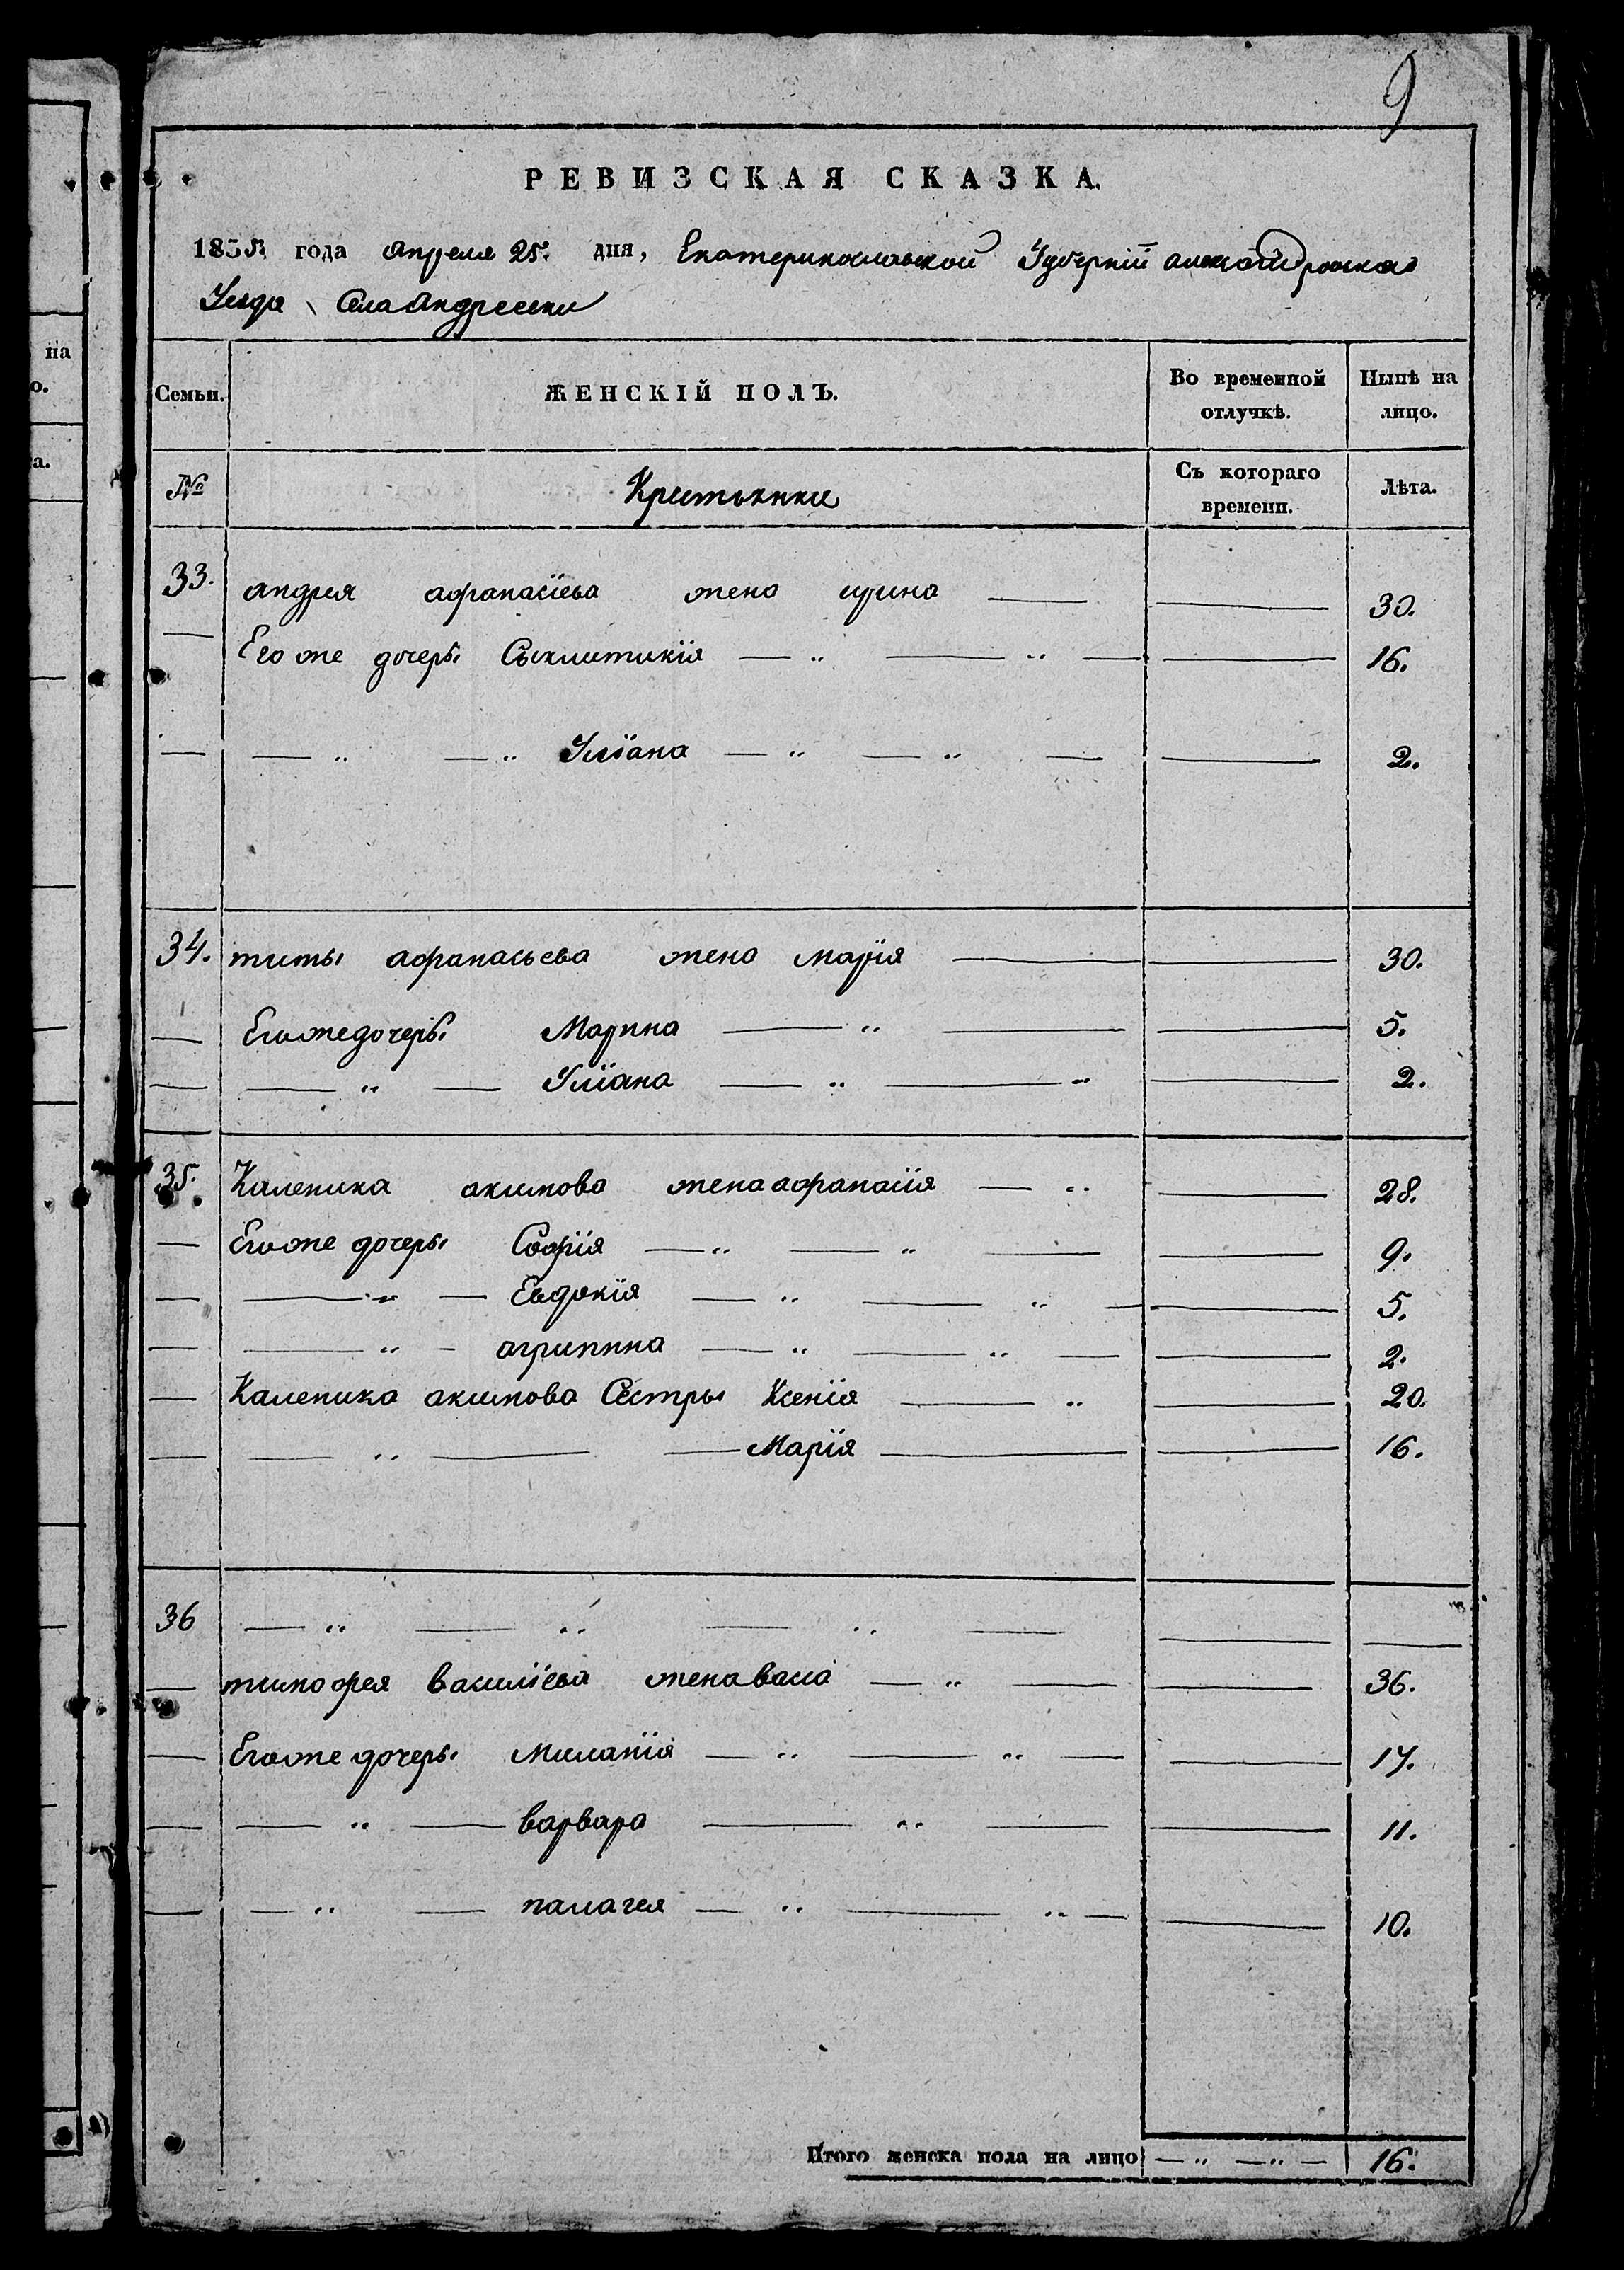 9
РЕВИЗСКАЯ СКАЗКА.
1835 года апреля 25. дня, Екатеринославской Губерніи александровскаго
Уезда Села Андреевки
Семьи. ЖЕНСКІЙ ПОЛЪ. Во временной отлучкѣ. Нынѣ на лицо.
№ Крестьянки Съ котораго времени. Лѣта.
33. андрея афанасіева жена ирина — — 30.
— Его же дочеры Сыклитикія — „ — „ — — 16.
— — „ — „ Уліана — „ — „ — — 2.
34. титы афанасьева жена марія — — 30.
— Егоже дочеры Марина — „ — — 5.
— — „ — Уліана — „ — „ — 2.
35. Каленика акимова жена афанасія — „ — 28.
— Егоже дочеры Софія — „ — „ — — 9.
— — „ — Евдокія — „ — „ — — 5.
— — „ — агрипина — „ — „ — — 2.
— Каленика акимова Сестры Ксенія — „ — 20.
— — „ — — Марія — — 16.
36 — „ — „ — „ — — —
— тимофея василіева жена васа — „ — — 36.
— Егоже дочеры Миланія — „ — „ — — 17.
— — „ — варвара — „ — — 11.
— — „ — палагея — „ — „ — — 10.
Итого женска пола на лицо — „ — „ — 16.
на
о.
а.